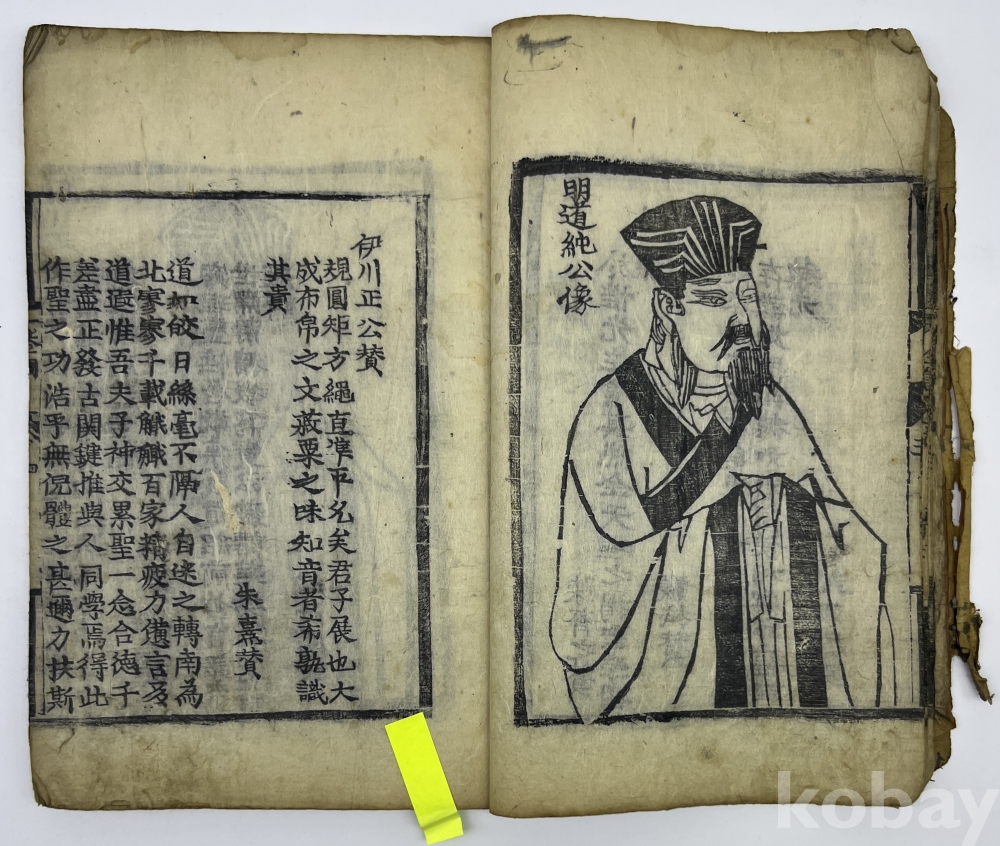 明道純公像
伊川正公賛
規圓矩方繩直準平允矣君子展也大
成布帛之文菽粟之味知音者希孰識
其貴
朱熹賛
道如皎日絲毫不隔人自迷之轉南為
北寥寥千載百家精疲力憊言及
道遐惟吾夫子神交累聖一念合德千
差盡正發古関鍵推與人同學焉得此
作聖之功浩乎無倪體之甚邇力扶斯
kobay